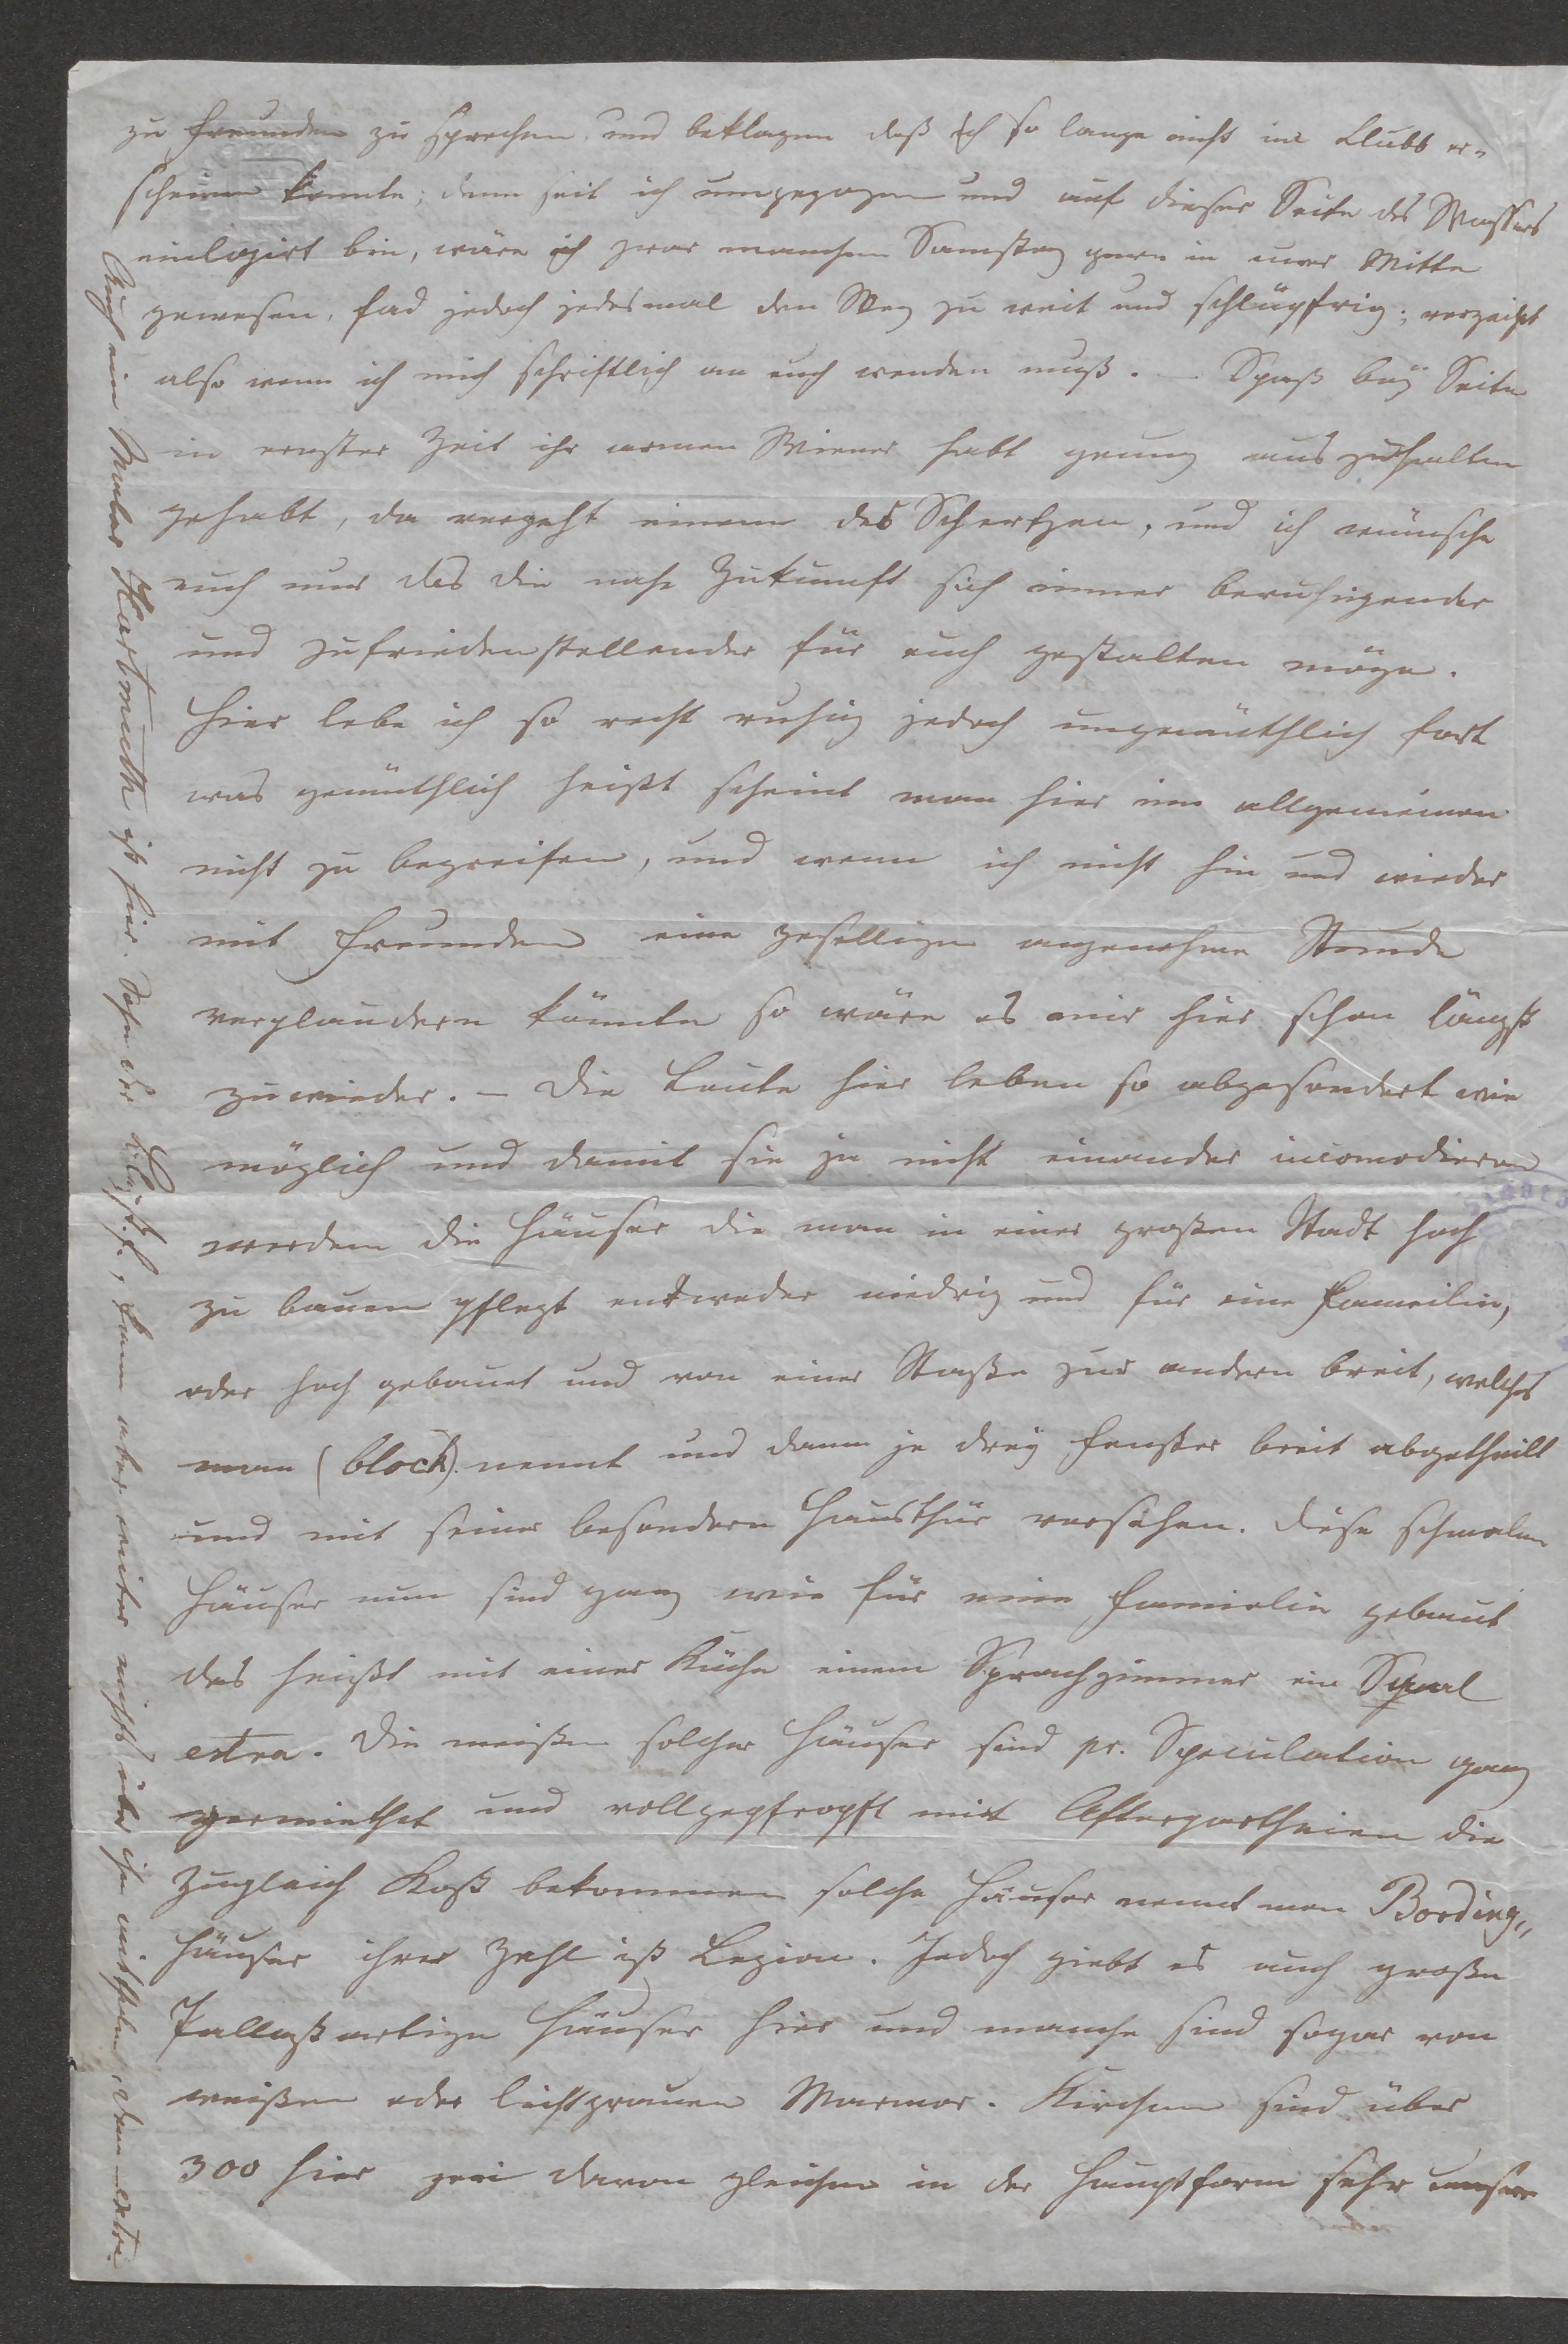 zu Freunden zu sprechen und beklagen daß ich so lange nicht im Clubb er-
scheinen konnte; denn seit ich umgezogen und auf dieser Seite des Wassers
einlogirt bin, wäre ich zwar manchen Samstag gern in eurer Mitte
gewesen, fad jedoch jedesmal den Weg zu weit und schlüpfrig; verzeiht
also wenn ich mich schriftlich an euch wenden muß. – Spaß beÿ Seite
in ernster Zeit ihr armen Wiener habt genug auszuhalten
gehabt, da vergeht einem das Schertzen, und ich wünsche
euch nur das die nahe Zukunft sich immer beruhigender
und zufriedenstellender für euch gestalten möge.
Hier lebe ich so recht ruhig jedoch ungemüthlich fort
was gemüthlich heißt scheint man hier im allgemeinen
nicht zu begreifen, und wenn ich nicht hin und wieder
mit Freunden eine gesellige angenehme Stunde
verplaudern könnte so wäre es mir hier schon längst
zuwieder. – Die Leute hier leben so abgesondert wie
möglich und damit sie ja nicht einander incomodieren
werden die Häuser die man in einer großen Stadt hoch
zu bauen pflegt entweder niedrig und für eine Fameilie,
oder hoch gebauet und von einer Staße zur andern breit, welches
man (block) nennt und dann je dreÿ Fenster breit abgetheilt
und mit seiner besondern Hausthür versehen. Diese schmalen
Häuser nun sind ganz wie für eine Familie gebaut
das heißt mit einer Küche einem Sprachzimmer ein Speial
extra. Die meisten solcher Häuser sind pr. Speculation ganz
vermiethet und vollgepfropft mit Afterpartheien die
zugleich Kost bekommen solche Häuser nennt man Bording„
häuser ihrer Zahl ist Legion. Jedoch giebt es auch große
Pallastartige Häuser hier und manche sind sogar von
weißen oder lichtgrauen Marmor. Kirchen sind über
300 hier zwei davon gleichen in der Hauptform sehr unserer
Auch ein Maler Hartmuth ist hier. Sohn des, kann aber weiter nichts über ihn mittheilen, denn